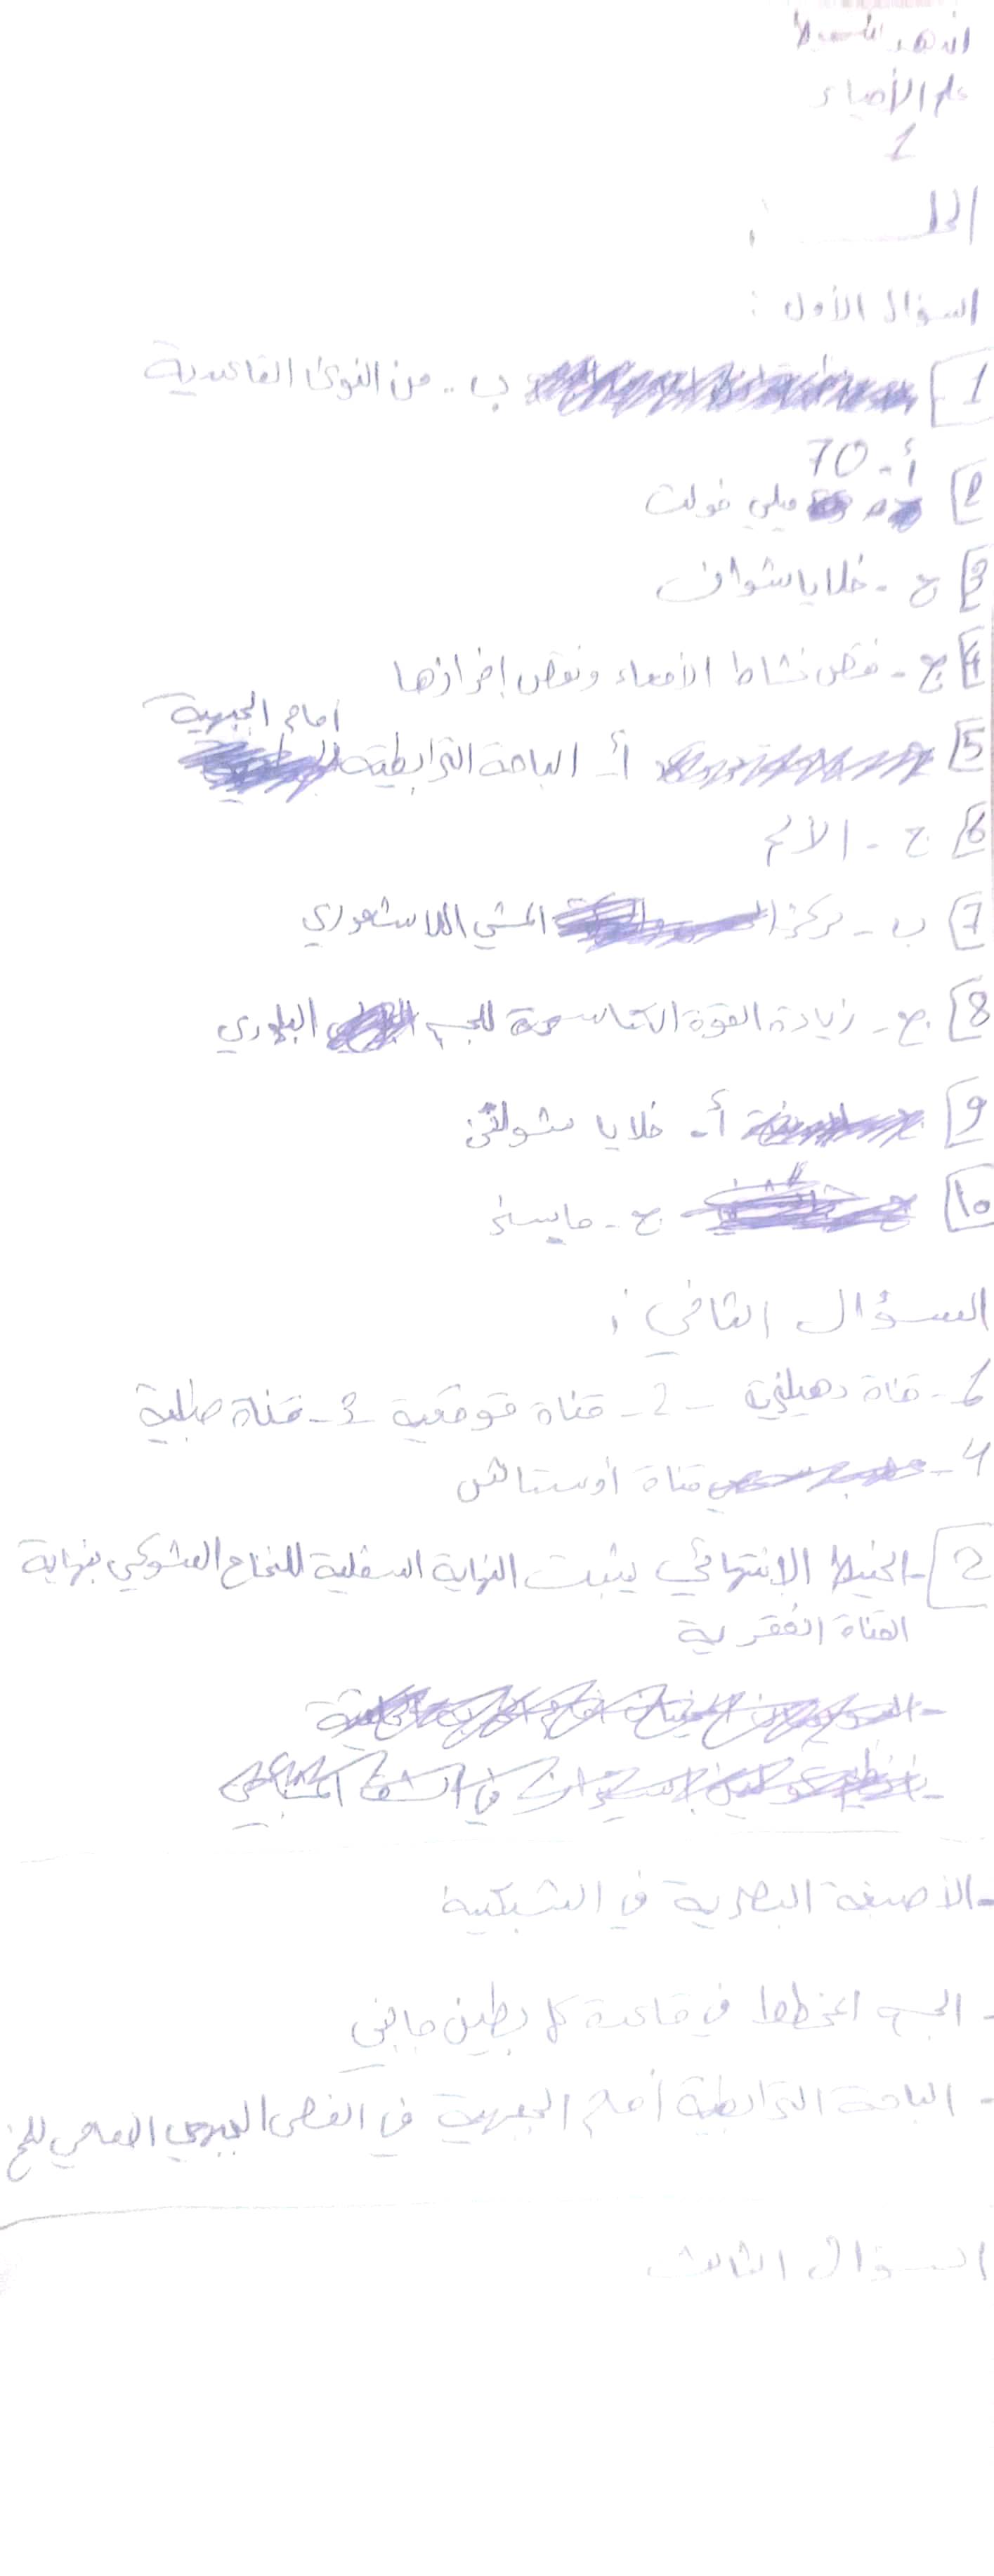 علم الأحياء
1
الحل :
السؤال الأول :
1 ب - من النوى القاعدية
أ - 70
2 ميلي فولت
3 ح - خلايا شوان
4 ج - نقص نشاط الأمعاء ونقص إفرازها
أمام الجبهية
5 أ - الباحة الترابطية
6 ج - الألم
7 ب - مركز المشي اللاشعوري
8 ج - زيادة القوة الكاسرة للجسم البلوري
9 أ - خلايا شولتز
10 ج - مايسنر
السؤال الثاني :
1 - قناة دهليزية - 2 - قناة قوقعية 3 - قناة طبلية
4 - قناة أوستاش
2 - الخيط الانتهائي يثبت النهاية السفلية للنخاع الشوكي بنهاية
القناة الفقرية
- الأصبغة البصرية في الشبكية
- الجسم المخطط في قاعدة كل بطين جانبي
- الباحة الترابطية أمام الجبهية في الفص الجبهي الأمامي للمخ
السؤال الثالث